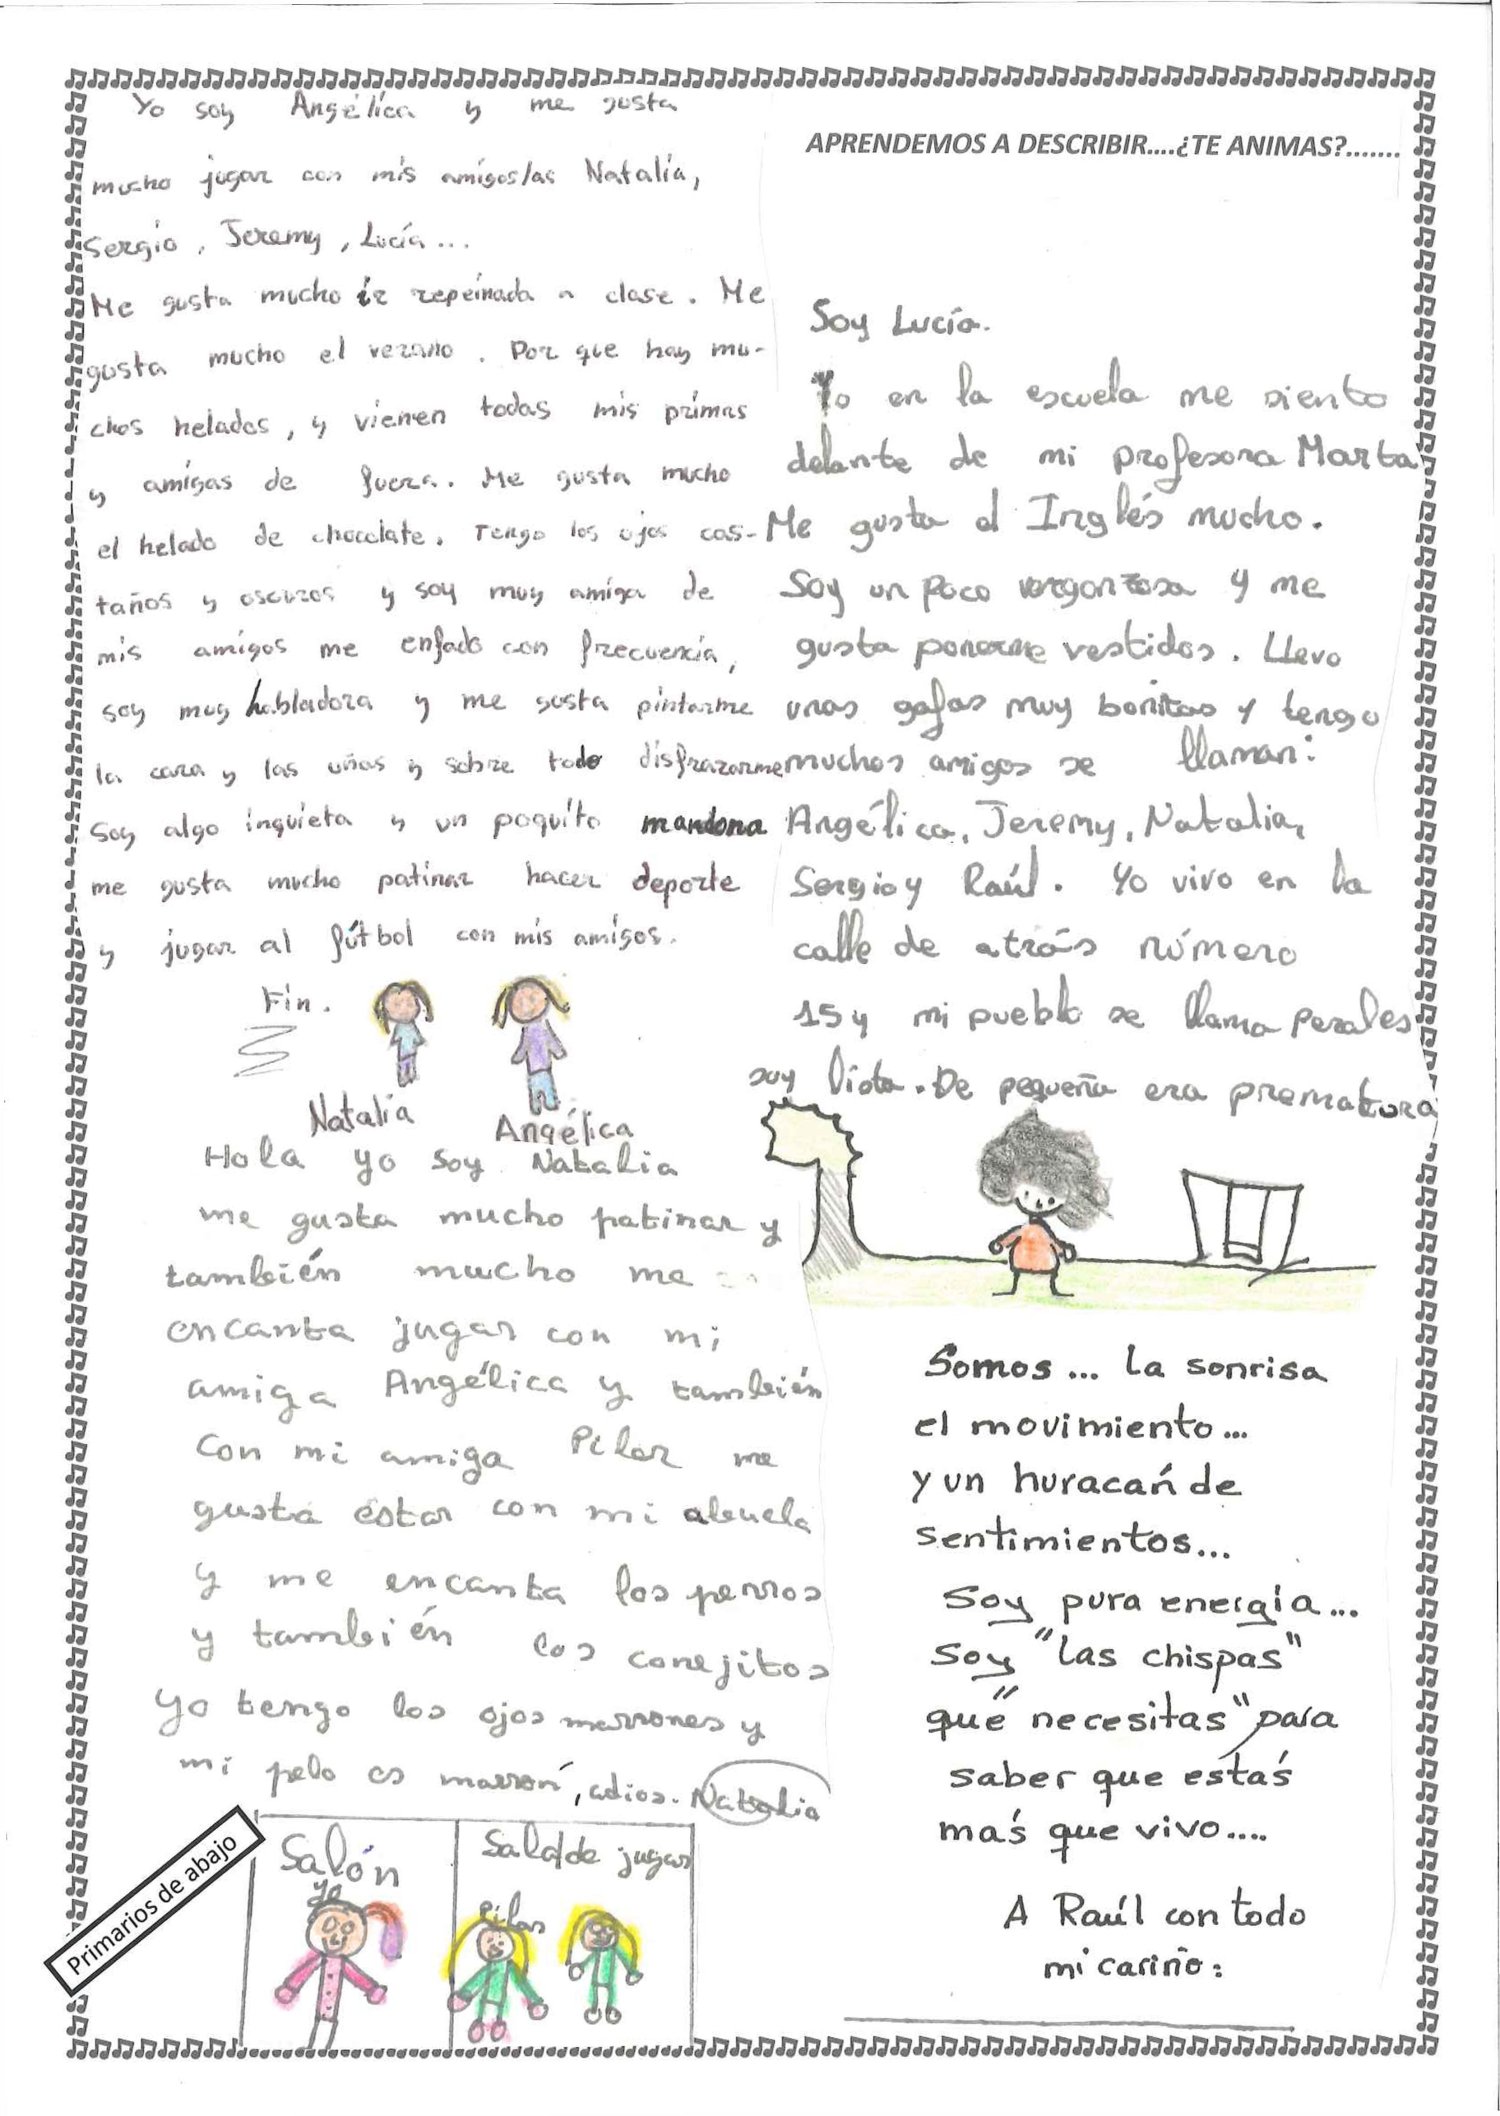 Yo soy Angélica y me gusta
mucho jugar con mis amigos/as Natalia,
Sergio, Jeremy, Lucía...
Me gusta mucho ir repeinada a clase. Me
gusta mucho el verano. Por que hay mu-
chos helados, y vienen todas mis primas
y amigas de fuera. Me gusta mucho
el helado de chocolate. Tengo los ojos cas-
taños y oscuros y soy muy amiga de
mis amigos me enfado con frecuencia,
soy muy habladora y me gusta pintarme
la cara y las uñas y sobre todo disfrazarme
Soy algo inquieta y un poquito mandona
me gusta mucho patinar hacer deporte
y jugar al fútbol con mis amigos.
Fin.
Natalia
Angélica
Hola yo soy Natalia
me gusta mucho patinar y
también mucho me
encanta jugar con mi
amiga Angélica y también
con mi amiga Pilar me
gusta estar con mi abuela
y me encanta los perros
y también los conejitos
yo tengo los ojos marrones y
mi pelo es marrón, adios. Natalia
Salón
yo
Sala de jugar
Pilar
Primarios de abajo
APRENDEMOS A DESCRIBIR....¿TE ANIMAS?.......
Soy Lucía.
Yo en la escuela me siento
delante de mi profesora Marta
Me gusta el Inglés mucho.
Soy un poco vergonzosa y me
gusta ponerme vestidos. Llevo
unas gafas muy bonitas y tengo
muchos amigos se llaman:
Angélica, Jeremy, Natalia,
Sergio y Raúl. Yo vivo en la
calle de atrás número
15 y mi pueblo se llama Perales
soy lista. De pequeña era prematura
Somos... la sonrisa
el movimiento...
y un huracán de
sentimientos...
Soy pura energía...
soy "las chispas"
que "necesitas" para
saber que estás
más que vivo....
A Raúl con todo
mi cariño: